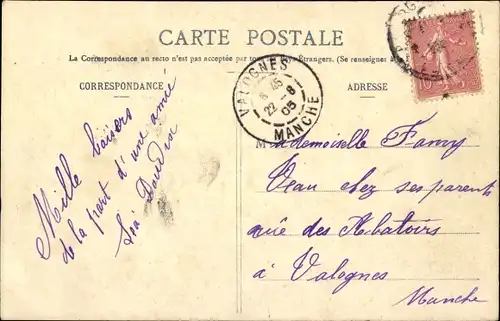 CARTE POSTALE
La Correspondance au recto n'est pas acceptée par tous les Pays Étrangers. (Se renseigner à
CORRESPONDANCE
ADRESSE
VALOGNES
22 - 8
05
MANCHE
10
Mille baisers
de la part d'une amie
Mademoiselle Fanny
Eau chez ses parents
rue des Abatoirs
à Valognes
Manche